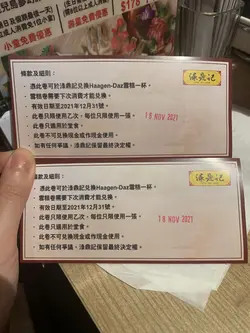 小童免費優惠
$178
壽星免費優惠
條款及細則：
· 憑此卷可於滌鼎記兌換Haagen-Daz雪糕一杯。
· 雪糕卷需要下次消費才能兌換。
· 有效日期至2021年12月31號。
· 此卷只限使用乙次，每位只限使用一張。
· 此卷只適用於堂食。
· 此卷不可兌換現金或作現金使用。
· 如有任何爭議，滌鼎記保留最終決定權。
滌鼎記
18 NOV 2021
條款及細則：
· 憑此卷可於滌鼎記兌換Haagen-Daz雪糕一杯。
· 雪糕卷需要下次消費才能兌換。
· 有效日期至2021年12月31號。
· 此卷只限使用乙次，每位只限使用一張。
· 此卷只適用於堂食。
· 此卷不可兌換現金或作現金使用。
· 如有任何爭議，滌鼎記保留最終決定權。
滌鼎記
18 NOV 2021